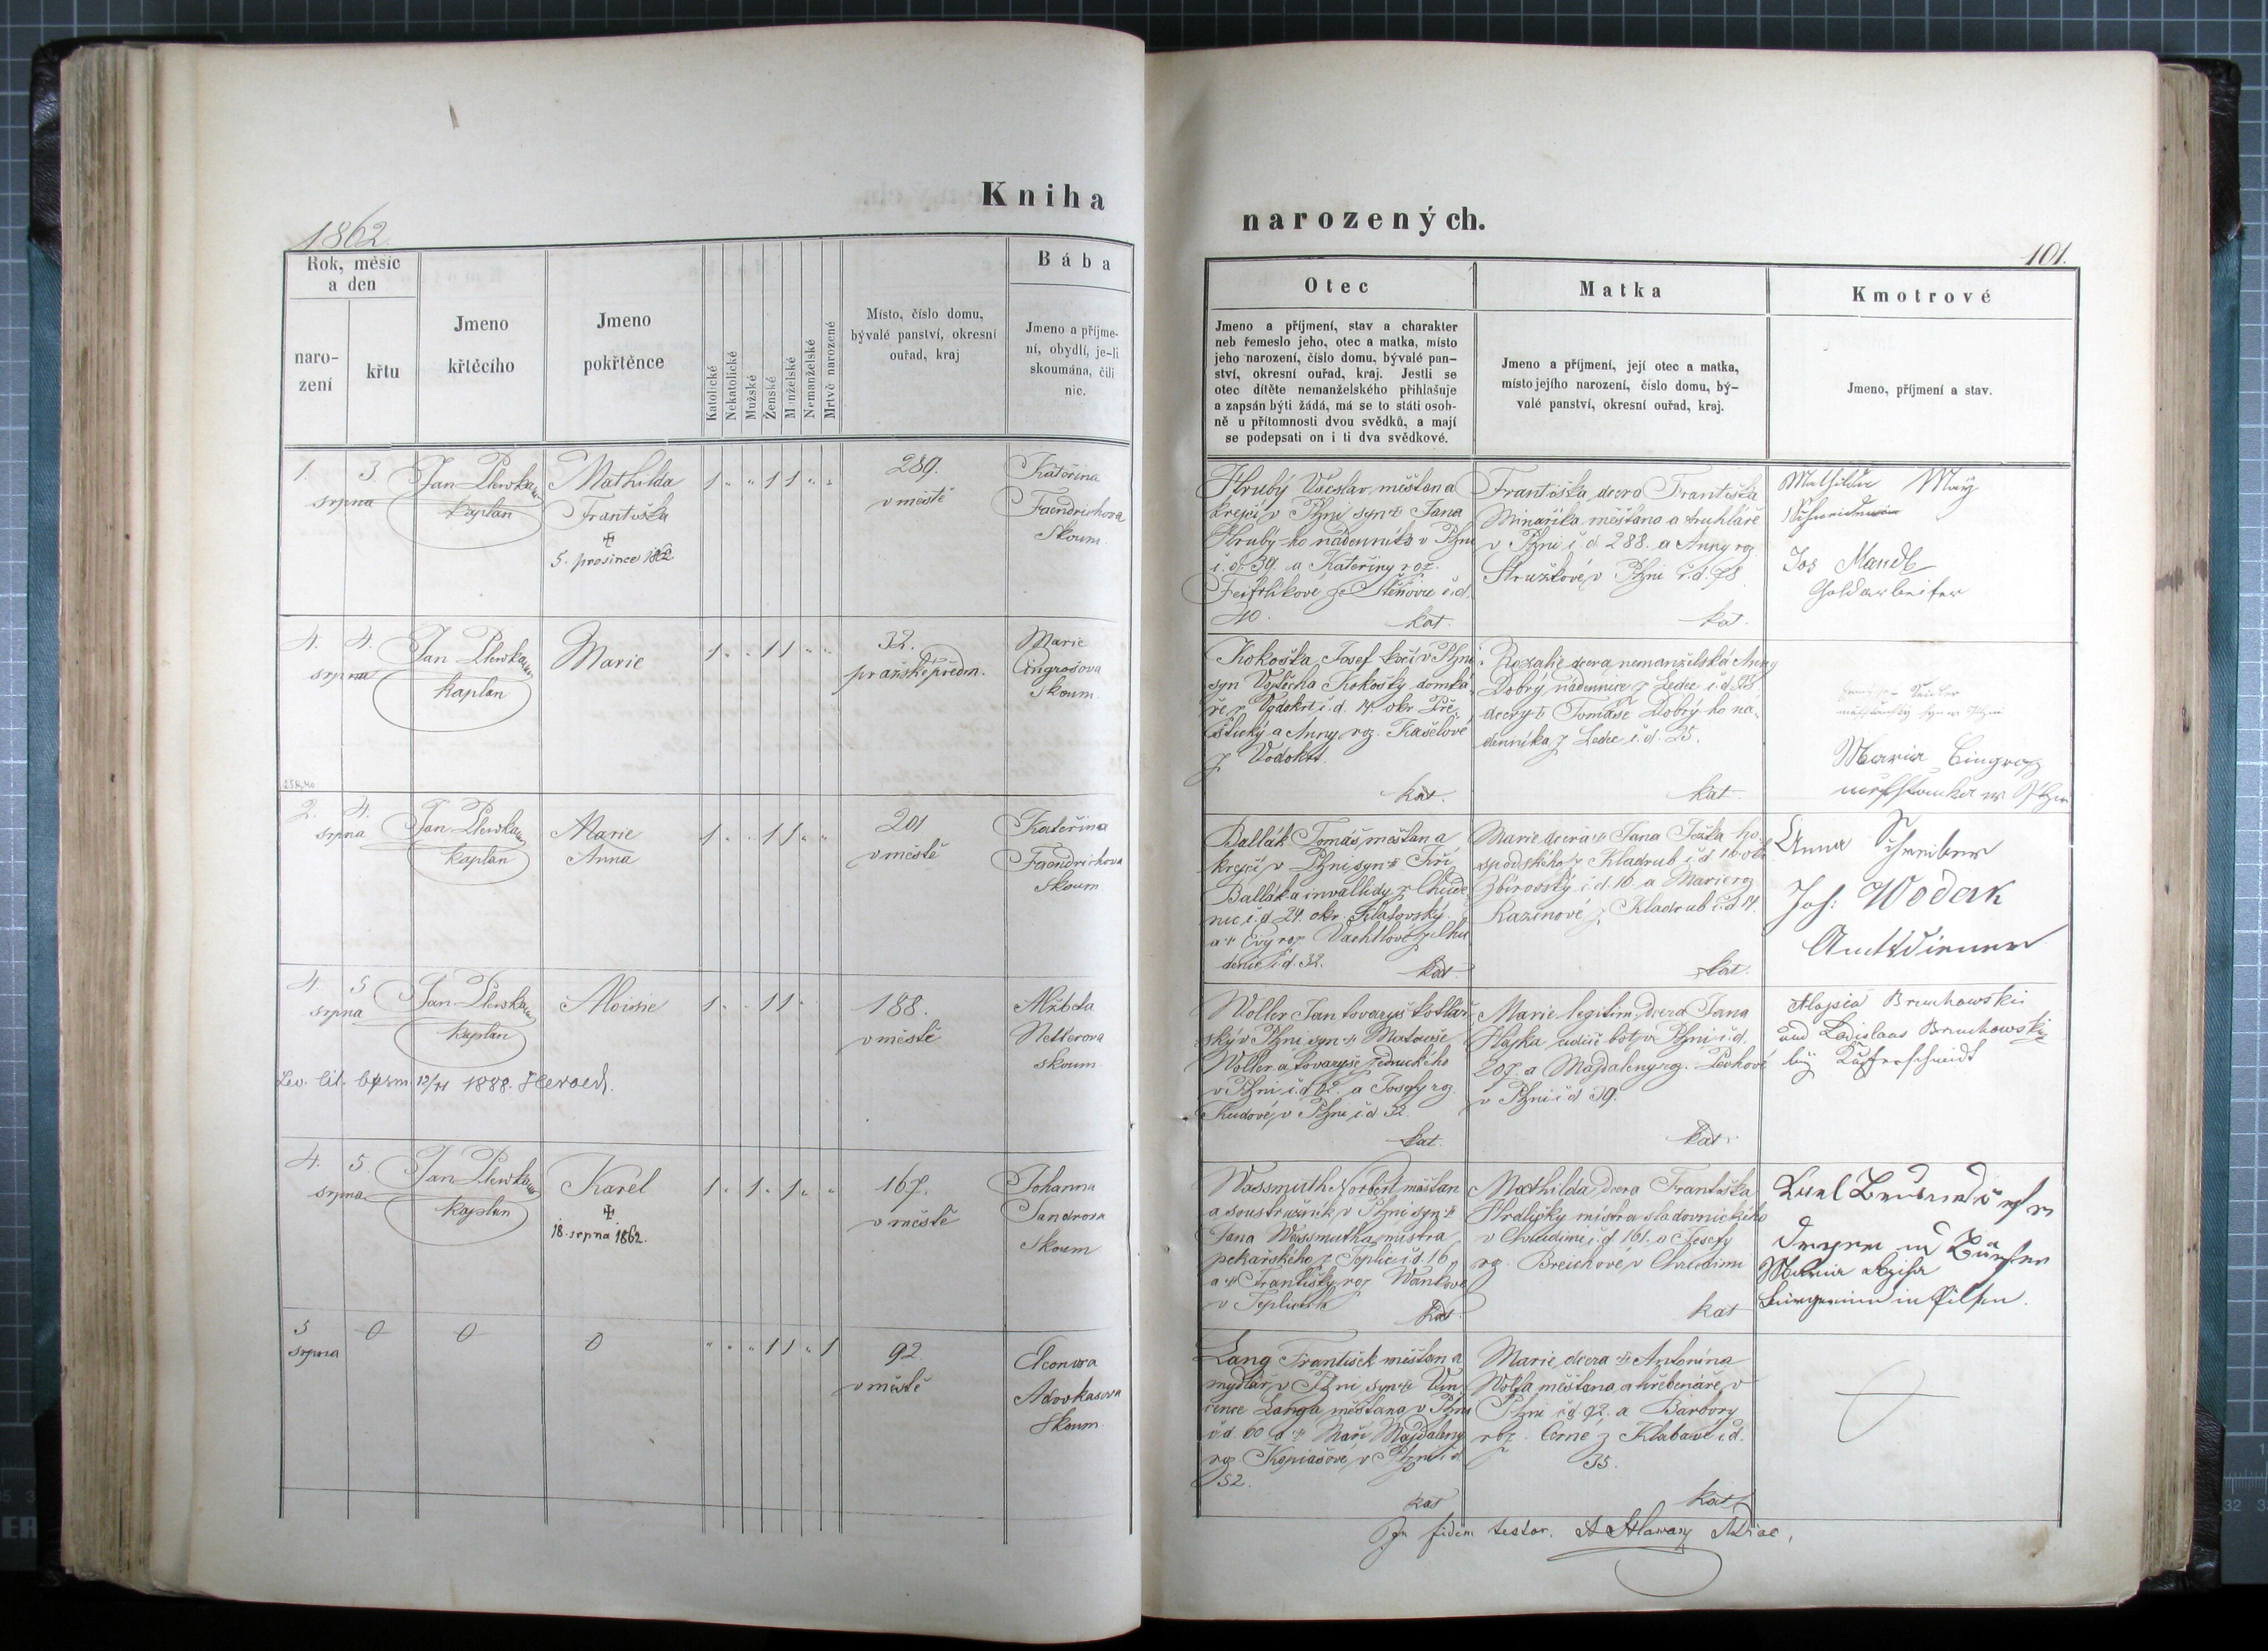 Kniha
1862
Rok, měsíc
a den
naro-
zení
křtu
Jmeno
křtěcího
Jmeno
pokřtěnce
Katolické
Nekatolické
Mužské
Ženské
Manželské
Nemanželské
Mrtvě narozené
Místo, číslo domu,
bývalé panství, okresní
ouřad, kraj
Bába
Jmeno a příjme-
ní, obydlí, je-li
skoumána, čili
nic.
1. 3. Jan Plewka Mathilda 1 " " 1 1 " " 289. Kateřina
srpna kaplan Františka v městě Faendrichova
Skoum.
5. prosince 1862
4. 4. Jan Plewka Marie 1 " " 1 1 " " 32. Marie
srpna kaplan pražské předm. Cingrošova
Skoum.
2. 4. Jan Plewka Marie 1 " " 1 1 " " 201 Kateřina
srpna kaplan Anna v městě Faendrichova
Skoum
4. 5 Jan Plewka Aloisie 1 " " 1 1 " 188. Alžběta
srpna kaplan v městě Netterova
skoum
1888.
4. 5. Jan Plewka Karel 1 " 1 " 1 " " 167. Johanna
srpna kaplan v městě Sandrova
Skoum
18. srpna 1862.
5 0 0 0 " " " 1 1 " 1 92. Eleonora
srpna v městě
Skoum.
narozených.
101.
Otec
Jmeno a příjmení, stav a charakter
neb řemeslo jeho, otec a matka, místo
jeho narození, číslo domu, bývalé pan-
ství, okresní ouřad, kraj. Jestli se
otec dítěte nemanželského přihlašuje
a zapsán býti žádá, má se to státi osob-
ně u přítomnosti dvou svědků, a mají
se podepsati on i ti dva svědkové.
Matka
Jmeno a příjmení, její otec a matka,
místo jejího narození, číslo domu, bý-
valé panství, okresní ouřad, kraj.
Kmotrové
Jmeno, příjmení a stav.
Hrubý Václav, měšťan a
krejčí v Plzni syn Jana
Hrubý-ho nádenníka v Plzni
č.d. 39. a Kateřiny roz.
č.d.
40. kat.
Františka, dcera Františka
Minaříka měšťana a truhláře
v Plzni č d 288. a Anny roz.
v Plzni č.d. 78
kat.
Mathilde May
Jos Mandl
Goldarbeiter
Kokoška Josef kočí v Plzni
syn Vojtěcha Kokošky domká
ře z Vodokrt č.d. 14. okr. Pře
štický a Anny roz. Kašelové
z Vodokrt.
kat.
Rozalie dcera nemanželská Anny
Dobrý nádennice z Ledec č.d. 25
dcery Tomáše Dobrý-ho ná-
denníka z Ledec č.d. 25.
kat.
Maria Cingroz
Ballák Tomáš měšťan a
krejčí v Plzni syn Jiří
Balláka invallidy z Chude
nic č.d 24. okr. Klatovský
a Evy roz Vachtlové z Chu
denic č.d. 32. kat.
Marie dcera Jana Ježka ho
spodského z Kladrub č.d 16 okr
Zbirovský č.d. 16 a Marie roz
Kazínové z Kladrub č.d 14.
kat.
Anna Schreiber
Joh: Wodak
Amtsdiener
Woller Jan tovaryš kotlář
ský v Plzni syn Matouše
Woller a tovaryše zednického
v Plzni č.d 12. a Josefy roz
v Plzni č d 32.
kat.
Marie legitim. dcera Jana
v Plzni č.d.
207. a Majdaleny roz. Levkové
v Plzni č d 39.
kat.
Aloysia Bruchowski
und Ladislaus Bruchowski
Wassmuth Norbert měšťan
a soustružník v Plzni syn
Jana Wassmutha mistra
pekařského z Teplic č.d. 16
a Františky roz Wankové
v Teplicích kat.
Mathilda dcera Františka
Hrdličky mistra sladovnického
v Chrudimi č.d 161. a Josefy
roz. Breichové v Chrudimi
kat
Bürgerinn in Pilsen.
Lang František měšťan a
mydlář v Plzni, syn Vin
cence Langa měšťana v Plzni
č.d. 60 a Maří Majdaleny
roz Kopiašové v Plzni č.d
52.
kat
Marie dcera Antonína
Wolfa měšťana a hřebenáře v
Plzni č.d 92. a Barbory
roz. Černé z Klabavě č.d.
35.
kat
In fidem testor.